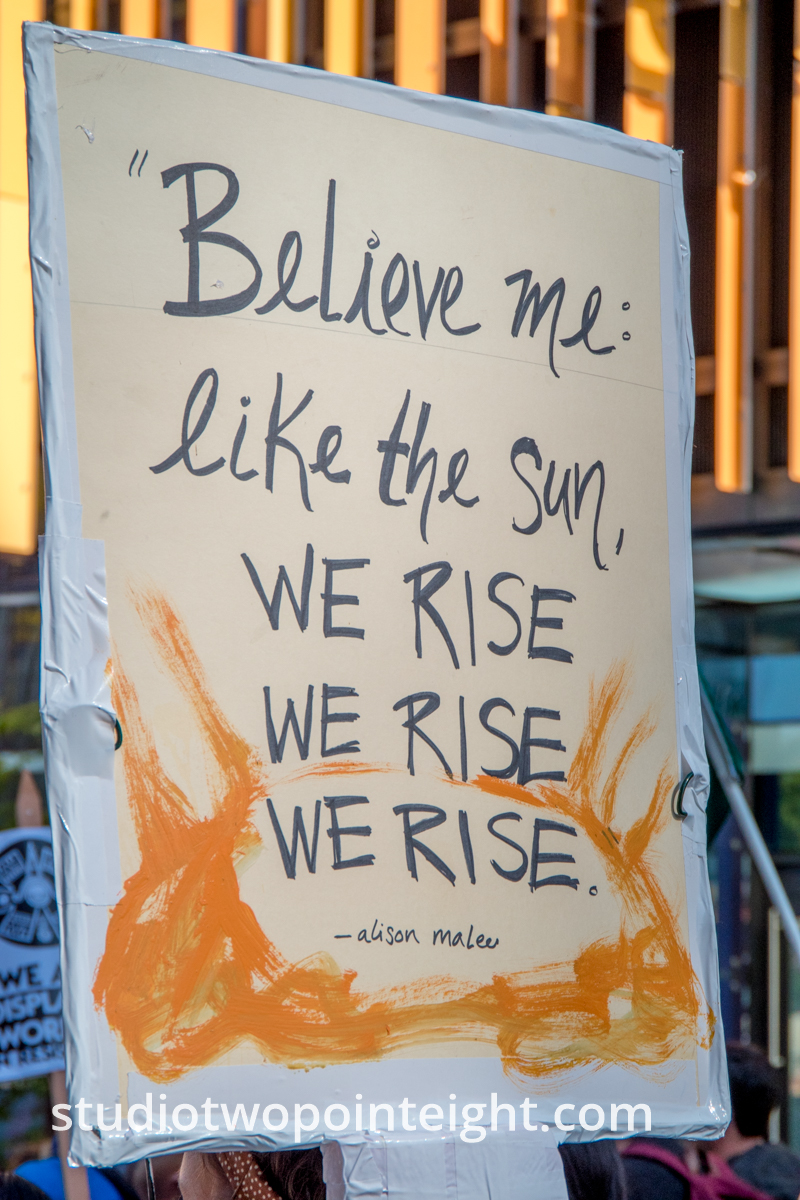 "Believe me:
like the sun,
WE RISE
WE RISE
WE RISE.
—alison malee
WE A
DISPL
WOR
N RESI
studiotwopointeight.com